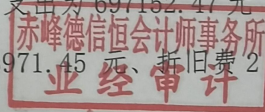 支出为 697152.47 元
赤峰德信恒会计师事务所
971.45 元、折旧费 2
业经审计